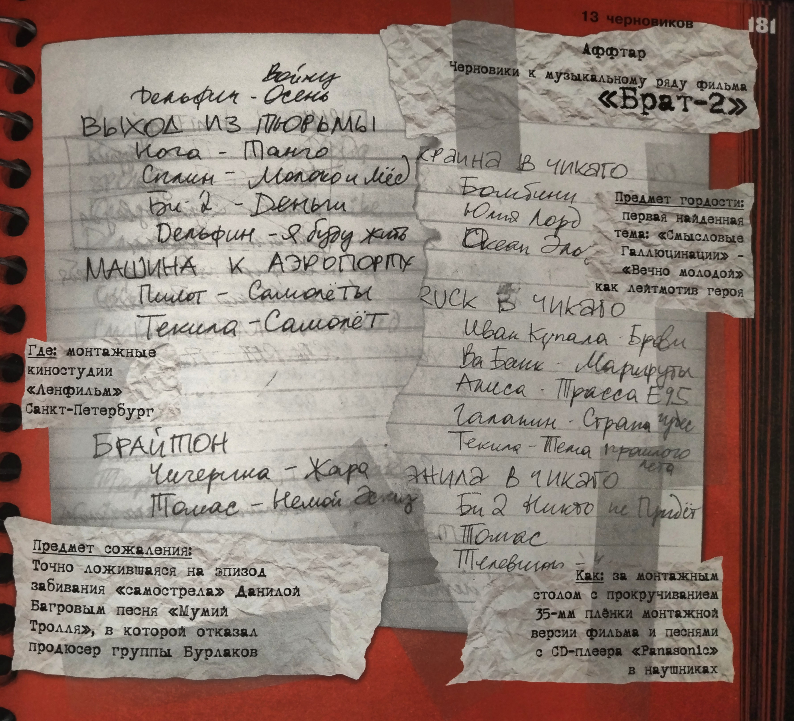 13 черновиков
181
Аффтар
Черновики к музыкальному ряду фильма
«Брат-2»
Войну
Дельфин - Осень
ВЫХОД ИЗ ТЮРЬМЫ
Нога - Танго
Сплин - Молоко и мёд
Би-2 - Деньги
Дельфин - Я буду жить
МАШИНА К АЭРОПОРТУ
Пилот - Самолёты
Текила - Самолёт
Где: монтажные
киностудии
«Ленфильм»
Санкт-Петербург
БРАЙТОН
Чичерина - Жара
Томас - Немой
Предмет сожаления:
Точно ложившаяся на эпизод
забивания «самострела» Данилой
Багровым песня «Мумий
Тролля», в которой отказал
продюсер группы Бурлаков
КРАИНА В ЧИКАГО
Бомбини
Юлия Лорд
Океан
Предмет гордости:
первая найденная
тема: «Смысловые
Галлюцинации» -
«Вечно молодой»
как лейтмотив героя
RUCK В ЧИКАГО
Иван Купала - Брови
Ва Банк - Маршруты
Алиса - Трасса Е95
Галанин - Страна чудес
Текила - Тема прошлого
лета
В ЧИКАГО
Би 2 Никто не Придёт
Томас
Телевизор -
Как: за монтажным
столом с прокручиванием
35-мм плёнки монтажной
версии фильма и песнями
с CD-плеера «Panasonic»
в наушниках